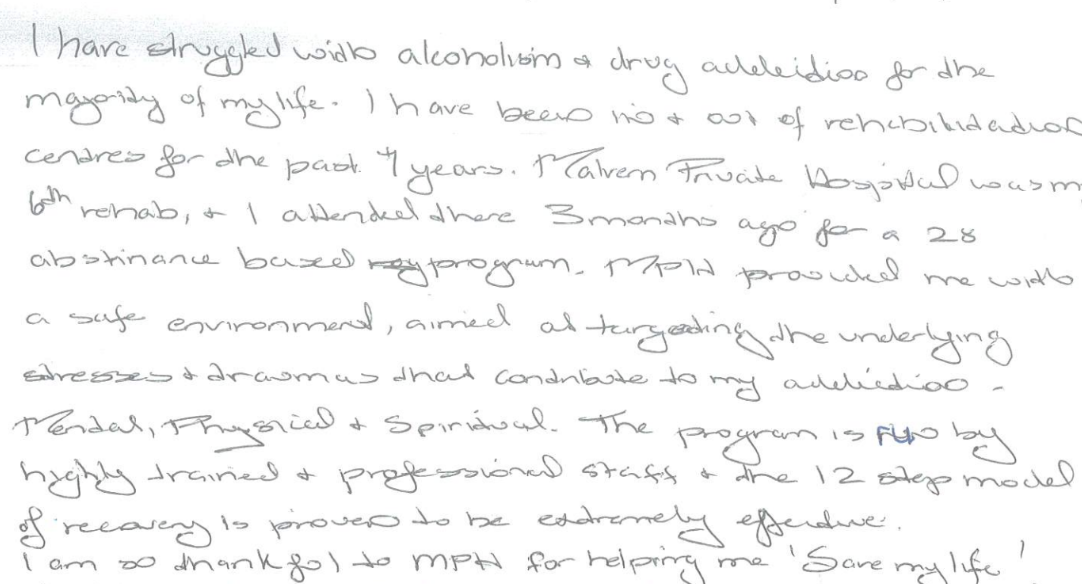 I have struggled with alcoholism & drug addiction for the
majority of my life. I have been in & out of rehabilitation
centres for the past 4 years. Malvern Private Hospital was m
6th rehab, & I attended there 3 months ago for a 28
abstinance based program. MPH provided me with
a safe environment, aimed at targeting the underlying
stresses & traumas that contribute to my addiction -
Mental, Physical & Spiritual. The program is run by
highly trained & professional staff & the 12 step model
of recovery is proven to be extremely effective.
I am so thankful to MPH for helping me 'Save my life'